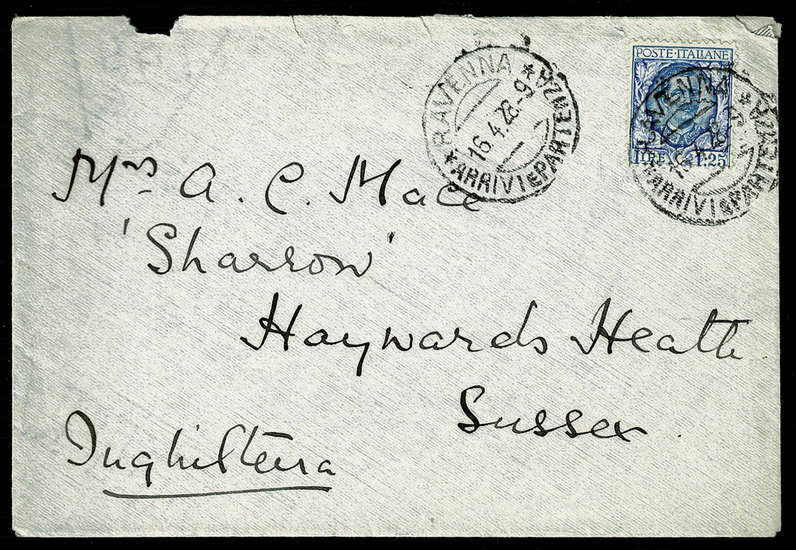 RAVENNA * ARRIVI E PARTENZA *
16.4.28.-9
POSTE·ITALIANE
LIRE 1.25
RAVENNA * ARRIVI E PARTENZA *
Mrs A. C. Mace
'Sharrow'
Haywards Heath
Sussex.
Inghilterra